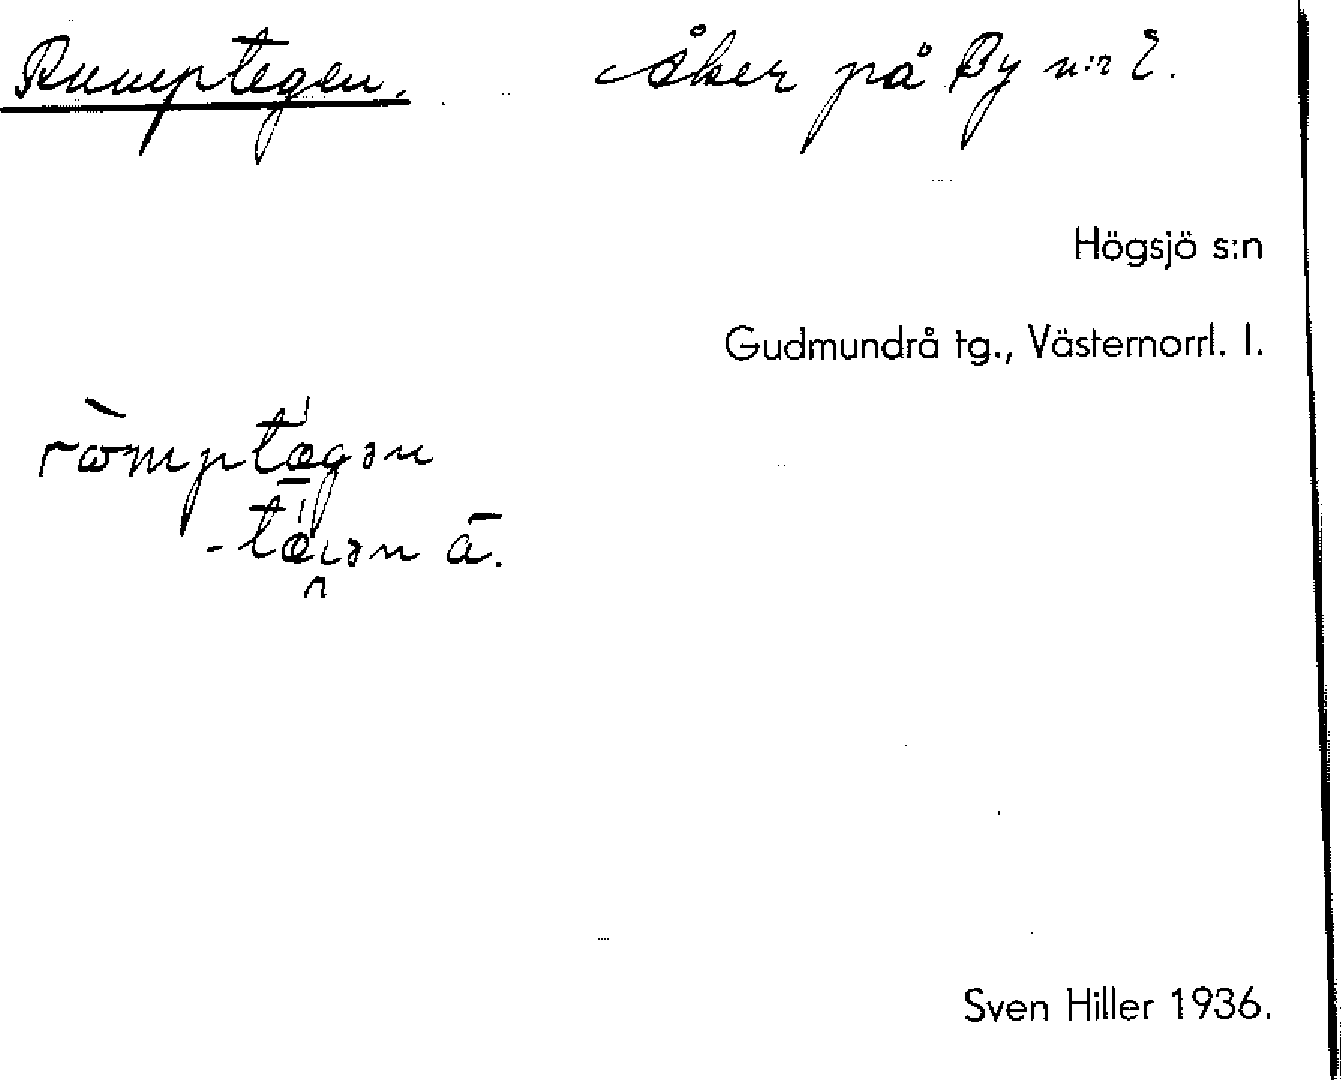 Rumptegen. Åker på By n:r 2.
Högsjö s:n
Gudmundrå tg., Västernorrl. l.
ròmptægən
-tæi̯ən ā.
Sven Hiller 1936.